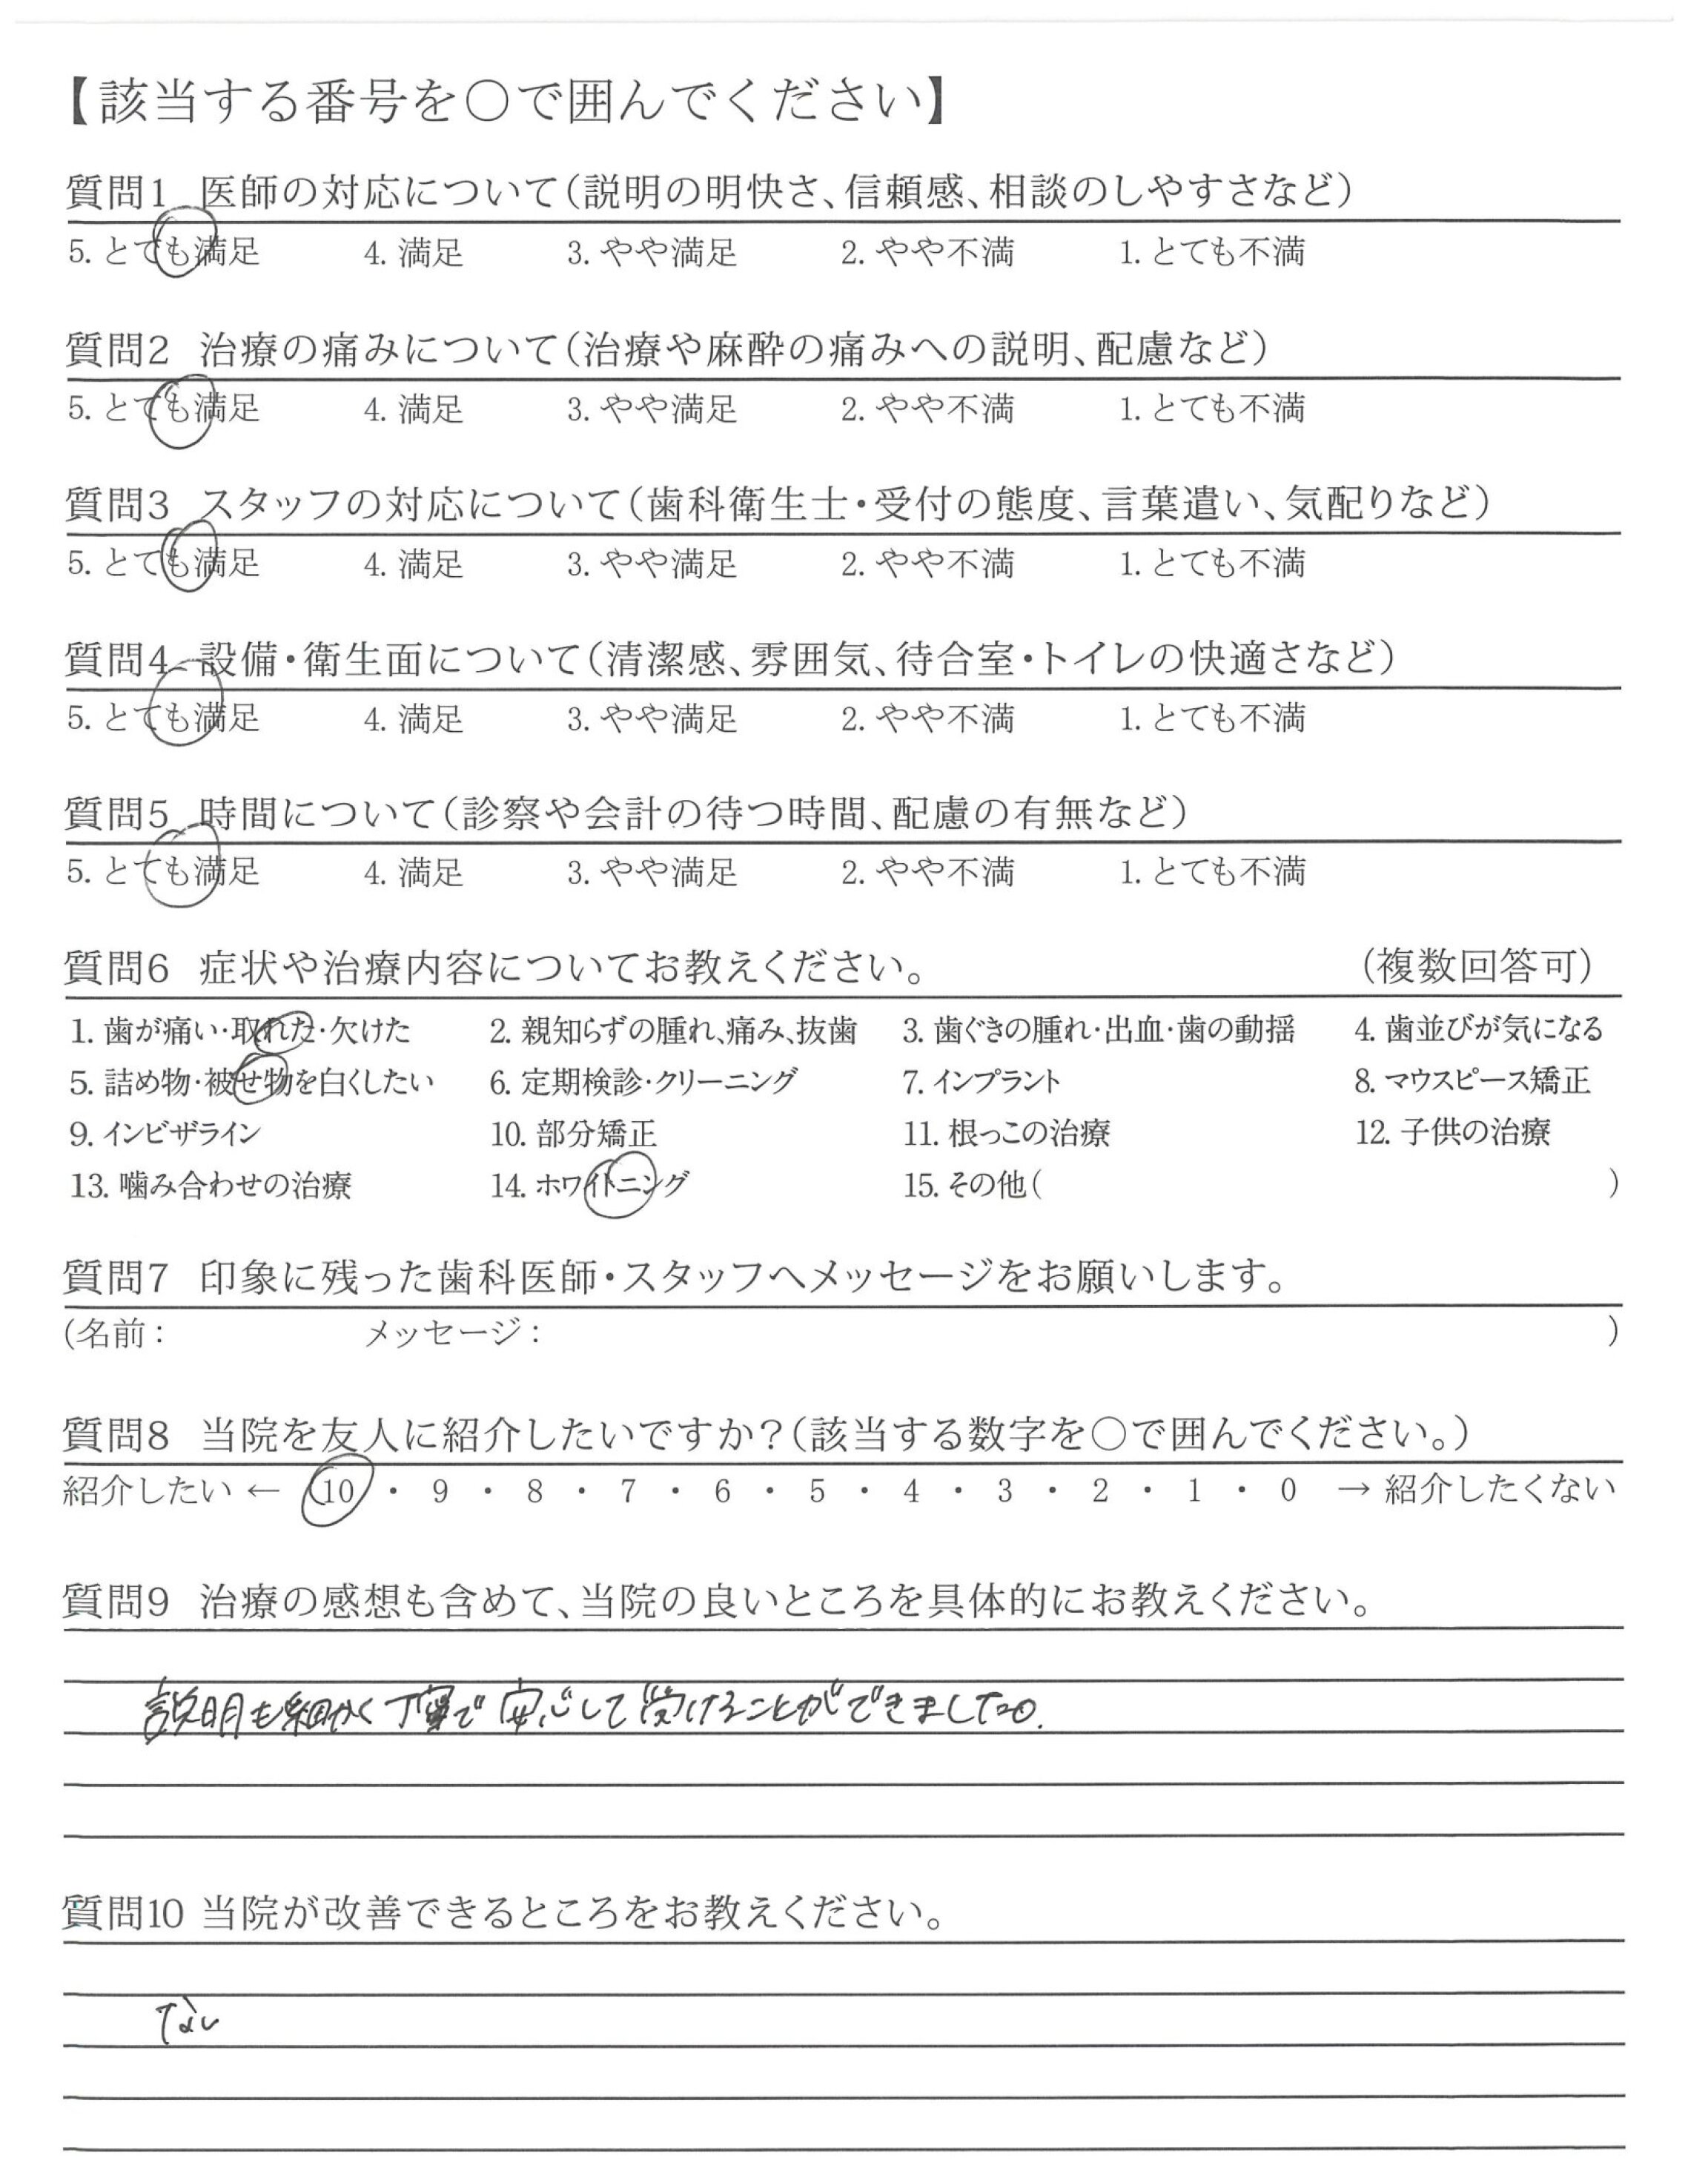 【該当する番号を○で囲んでください】
質問1 医師の対応について(説明の明快さ、信頼感、相談のしやすさなど)
5. とても満足 4. 満足 3. やや満足 2. やや不満 1. とても不満
質問2 治療の痛みについて(治療や麻酔の痛みへの説明、配慮など)
5. とても満足 4. 満足 3. やや満足 2. やや不満 1. とても不満
質問3 スタッフの対応について(歯科衛生士・受付の態度、言葉遣い、気配りなど)
5. とても満足 4. 満足 3. やや満足 2. やや不満 1. とても不満
質問4 設備・衛生面について(清潔感、雰囲気、待合室・トイレの快適さなど)
5. とても満足 4. 満足 3. やや満足 2. やや不満 1. とても不満
質問5 時間について(診察や会計の待つ時間、配慮の有無など)
5. とても満足 4. 満足 3. やや満足 2. やや不満 1. とても不満
質問6 症状や治療内容についてお教えください。 (複数回答可)
1. 歯が痛い・取れた・欠けた 2. 親知らずの腫れ、痛み、抜歯 3. 歯ぐきの腫れ・出血・歯の動揺 4. 歯並びが気になる
5. 詰め物・被せ物を白くしたい 6. 定期検診・クリーニング 7. インプラント 8. マウスピース矯正
9. インビザライン 10. 部分矯正 11. 根っこの治療 12. 子供の治療
13. 噛み合わせの治療 14. ホワイトニング 15. その他( )
質問7 印象に残った歯科医師・スタッフへメッセージをお願いします。
(名前: メッセージ: )
質問8 当院を友人に紹介したいですか?(該当する数字を○で囲んでください。)
紹介したい ← 10 ・ 9 ・ 8 ・ 7 ・ 6 ・ 5 ・ 4 ・ 3 ・ 2 ・ 1 ・ 0 → 紹介したくない
質問9 治療の感想も含めて、当院の良いところを具体的にお教えください。
説明も細かく丁寧で安心して受けることができました。
質問10 当院が改善できるところをお教えください。
ない